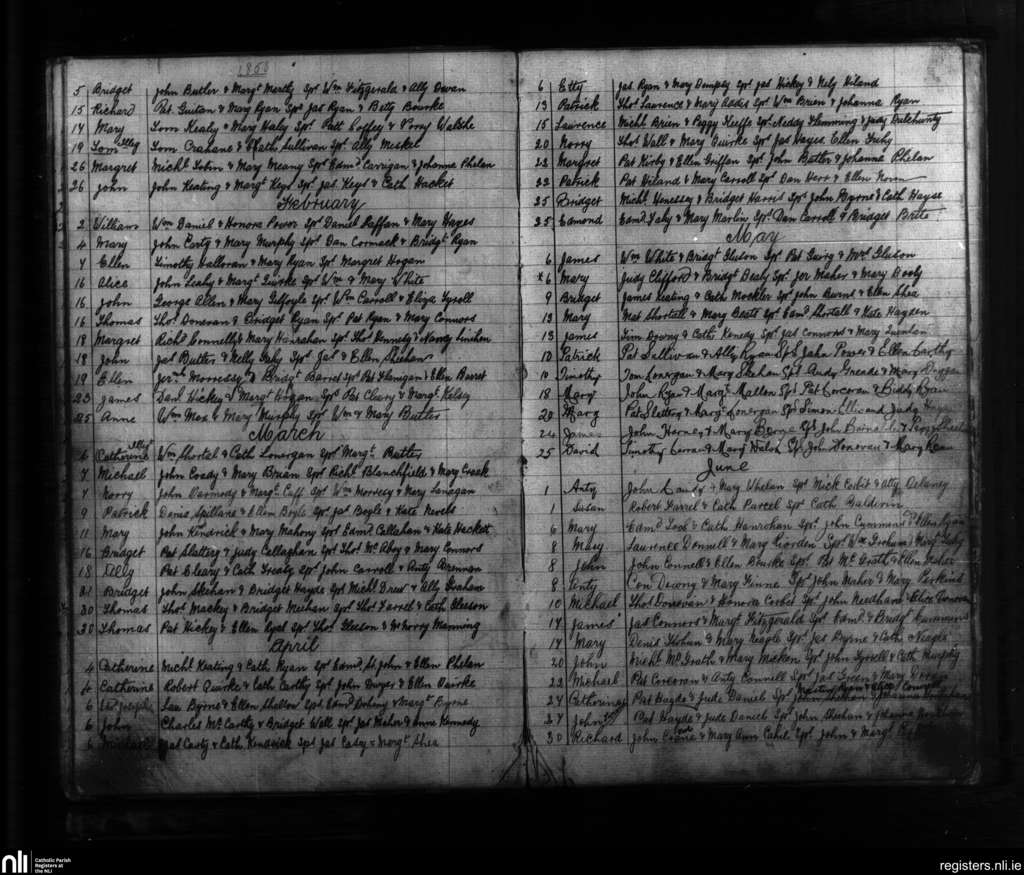 185
5 Bridget John Butler & Margt Spr Wm Fitzgerald & Ally Dwan
15 Richard Pat Guitan & Mary Ryan Spr Jas Ryan & Betty Bourke
17 Mary Tom Kealy & Mary Haly Spr Patt Coffey & Walshe
19 Tom Illeg Tom Crahane & Cath Sullivan Spr Ally Meskel
26 Margret Michl Tobin & Mary Meany Spr Edmd Carrigan & Johanna Phelan
26 John John Keating & Margt Keys Spr Jas Keys & Cath Hacket
February
2 William Wm Daniel & Honora Power Spr Daniel Laffan & Mary Hayes
4 Mary John Carty & Mary Murphy Spr Dan Cormack & Bridgt Ryan
7 Ellen Timothy Halloran & Mary Ryan Spr Margret Hogan
16 Alice John Leahy & Margt Quirke Spr Wm & Mary White
16 John George Allen & Mary Gilfoyle Spr Wm Carroll & Eliza Tyrell
16 Thomas Thos Donovan & Bridget Ryan Spr Pat Ryan & Mary Connors
18 Margret Richd Connelly & Mary Hanrahan Spr Thos Kennedy &
18 John Jas Butler & Nelly Fahy Spr Jas & Ellen Skehan
19 Ellen Morressy & Bridgt Barret Spr Pat Flanigan & Ellen Barret
23 James Danl Hickey & Margt Hogan Spr Pat Cleary & Margt Kelsey
25 Anne Wm Max & Mary Murphy Spr Wm & Mary Butler
March
6 Catherine Illeg Wm Shortel & Cath Lonergan Spr Margt Butler
7 Michael John Coady & Mary Brian Spr Richd Blanchfield & Mary Croak
7 Norry John Darmody & Margt Spr Wm Morressy & Mary Lanagan
9 Patrick Denis Spillane & Ellen Boyle Spr Jas Boyle & Kate
11 Mary John Kendrick & Mary Mahony Spr Edmd Callahan & Kate Hackett
16 Bridget Pat Slattery & Judy Callaghan Spr Thos Mc & Mary Connors
18 Ally Pat Cleary & Cath Treaty Spr John Carroll & Anty Brennan
21 Bridget John Skehan & Bridget Hayde Spr Michl Drew & Ally Graham
30 Thomas Thos Mackey & Bridget Meehan Spr Thos Farrel & Cath Gleeson
30 Thomas Pat Hickey & Ellen Spr Thos Gleeson & Norry Manning
April
4 Catherine Michl Keating & Cath Ryan Spr Edmd St John & Ellen Phelan
4 Catherine Robert Quirke & Cath Carthy Spr John Dwyer & Ellen Quirke
6 Joseph Lau Byrne & Ellen Shelton Spr Edmd Doheny & Margt Byrne
6 John Charles McCarthy & Bridget Wall Spr Jas Maher & Anne Kennedy
6 Michael Jas Carty & Cath Kendrick Spr Jas Casey & Margt Shea
6 Etty Jas Ryan & Mary Dempsy Spr Jas Hickey & Nelly Hiland
13 Patrick Thos Lawrence & Mary Spr Wm Brien & Johanna Ryan
15 Lawrence Michl Brien & Peggy Keeffe Spr Neddy Flemming & Judy
20 Norry Thos Wall & Mary Quirke Spr Jas Hayes Ellen
22 Margret Pat Kirby & Ellen Griffan Spr John Butler & Johanna Phelan
22 Patrick Pat Hiland & Mary Carroll Spr Dan Herr & Ellen
25 Bridget Michl Henessey & Bridget Harris Spr John Byrne & Cath Hayse
25 Edmond Edmd Fahy & Mary Marlin Spr Dan Carroll & Bridget
May
6 James Wm White & Bridgt Gleson Spr Pat & Mrs Gleson
x6 Mary Judy Clifford & Bridgt Spr Jer Maher & Mary Dooly
9 Bridget James Keating & Cath Mockler Spr John Burns & Ellen Shea
12 Mary Mat Shortall & Mary Spr Edmd Shortall & Kate Hayden
13 James Tim Downy & Cath Kenedy Spr Jas Connors & Mary Quinlan
10 Patrick Pat Sullivan & Ally Ryan Sps John Power & Ellen Carthy
10 Timothy Tom Lonergan & Mary Skehan Sps Andy & Mary
18 Mary John Ryan & Margt Mallon Sps Pat Corcoran & Biddy Ryan
20 Mary Pat Slattery & Margt Lonergan Sps Simon Ellis and Judy
24 James John & Mary Byrne Sps John
25 David Timothy Curran & Mary Sps John Donovan & Mary
June
1 Anty John & Mary Whelan Spr Mick Corbit & Delaney
1 Susan Robert & Cath Purcel Spr Cath Baldwin
6 Mary Edmd & Cath Hanrahan Spr John Cummins & Ellen Ryan
8 Mary Lawrence Donnell & Mary Riordan Spr Wm & Margt
8 John John Connell & Ellen Bourke Spr Pat McGrath & Ellen Maher
8 Anty Con Downy & Mary Spr John Meher & Mary Perkins
10 Michael Thos Donovan & Honora Corbet Spr John Needham & Alice Donovan
17 James Jas Connors & Margt Fitzgerald Spr Edmd & Bridgt Cummins
17 Mary Denis & Mary Neagle Spr Jas Byrne & Cath Neagle
20 John Michl McGrath & Mary Spr John Tyrell & Cath Murphy
22 Michael Pat Corcoran & Anty Connell Spr Jas Green & Mary
24 Catherine Pat Hayde & Jude Daniel Spr
27 John Pat Hayde & Jude Daniel Spr John Skehan & Johanna
30 Richard John & Mary Ann Cahil Spr John & Margt
nli Catholic Parish Registers at the NLI
registers.nli.ie